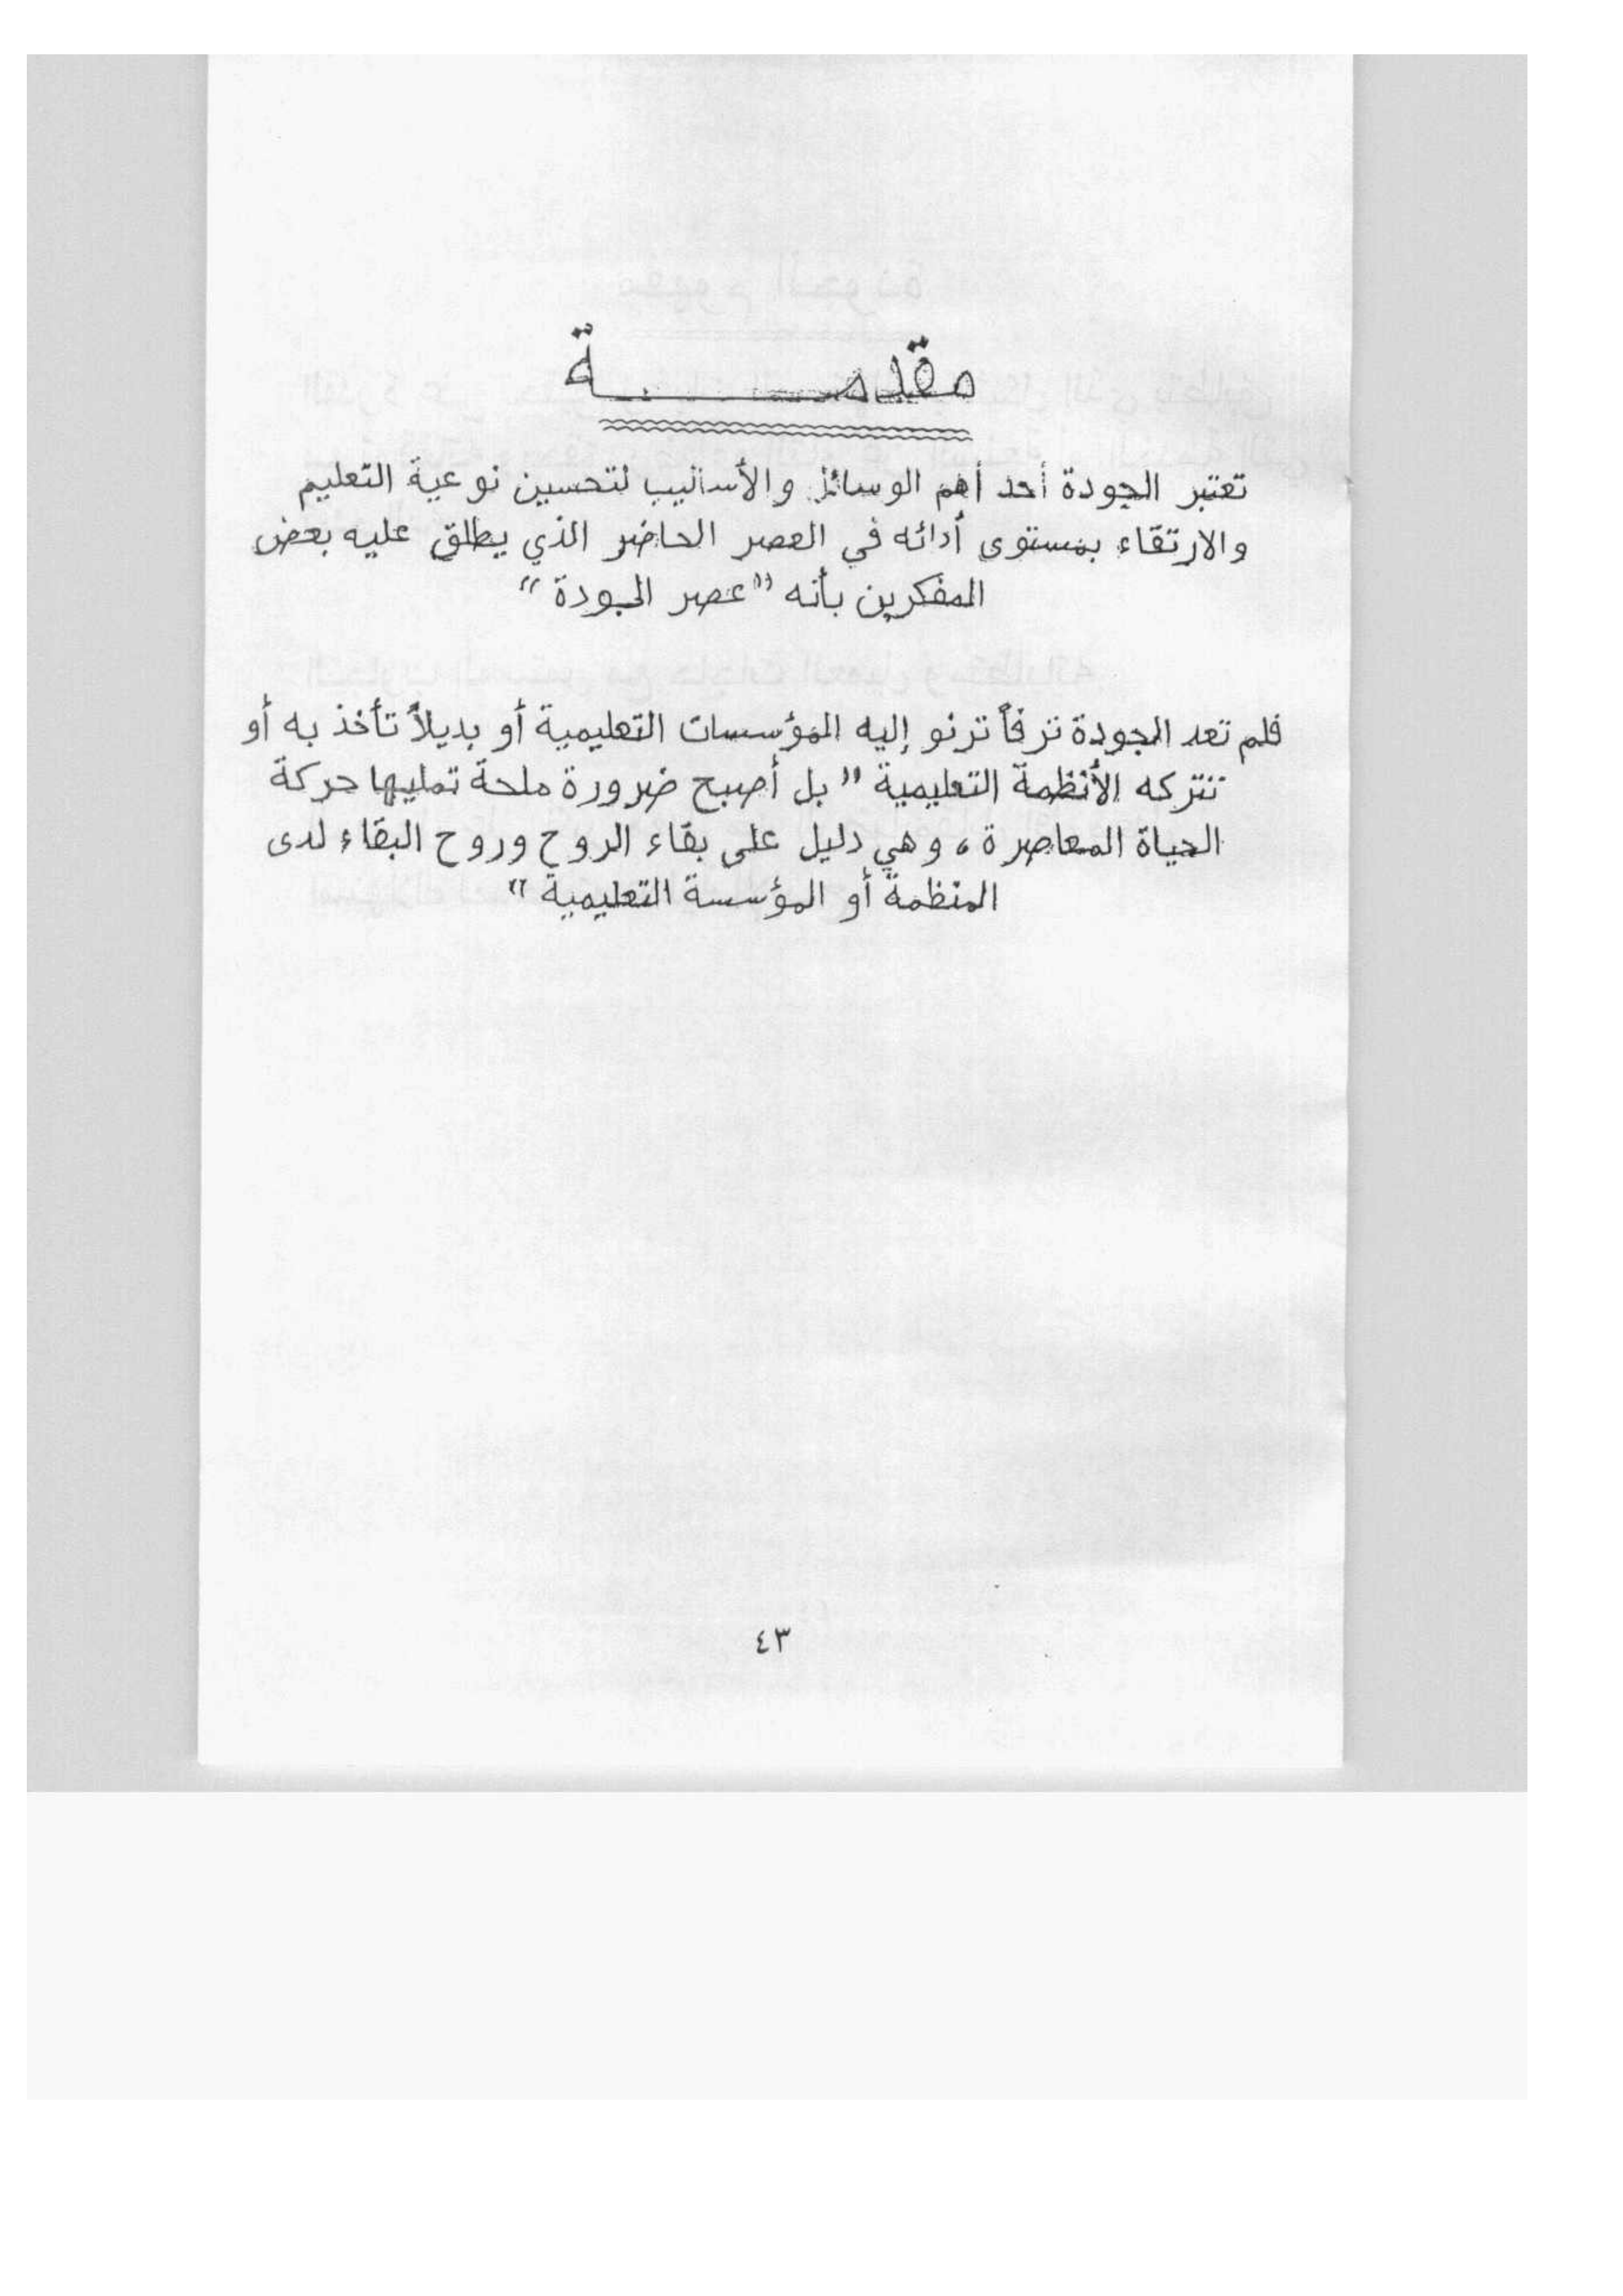 مقدمـــــــة
تعتبر الجودة أحد أهم الوسائل والأساليب لتحسين نوعية التعليم
والارتقاء بمستوى أدائه في العصر الحاضر الذي يطلق عليه بعض
المفكرين بأنه "عصر الجودة"
فلم تعد الجودة ترفاً ترنو إليه المؤسسات التعليمية أو بديلاً تأخذ به أو
تتركه الأنظمة التعليمية " بل أصبح ضرورة ملحة تمليها حركة
الحياة المعاصرة، وهي دليل على بقاء الروح وروح البقاء لدى
المنظمة أو المؤسسة التعليمية "
٤٣